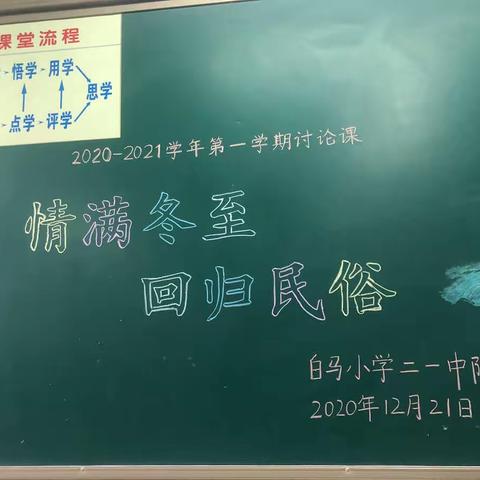 课堂流程
悟学 用学
思学
点学 评学
2020-2021学年第一学期讨论课
情满冬至
回归民俗
白马小学二一中队
2020年12月21日